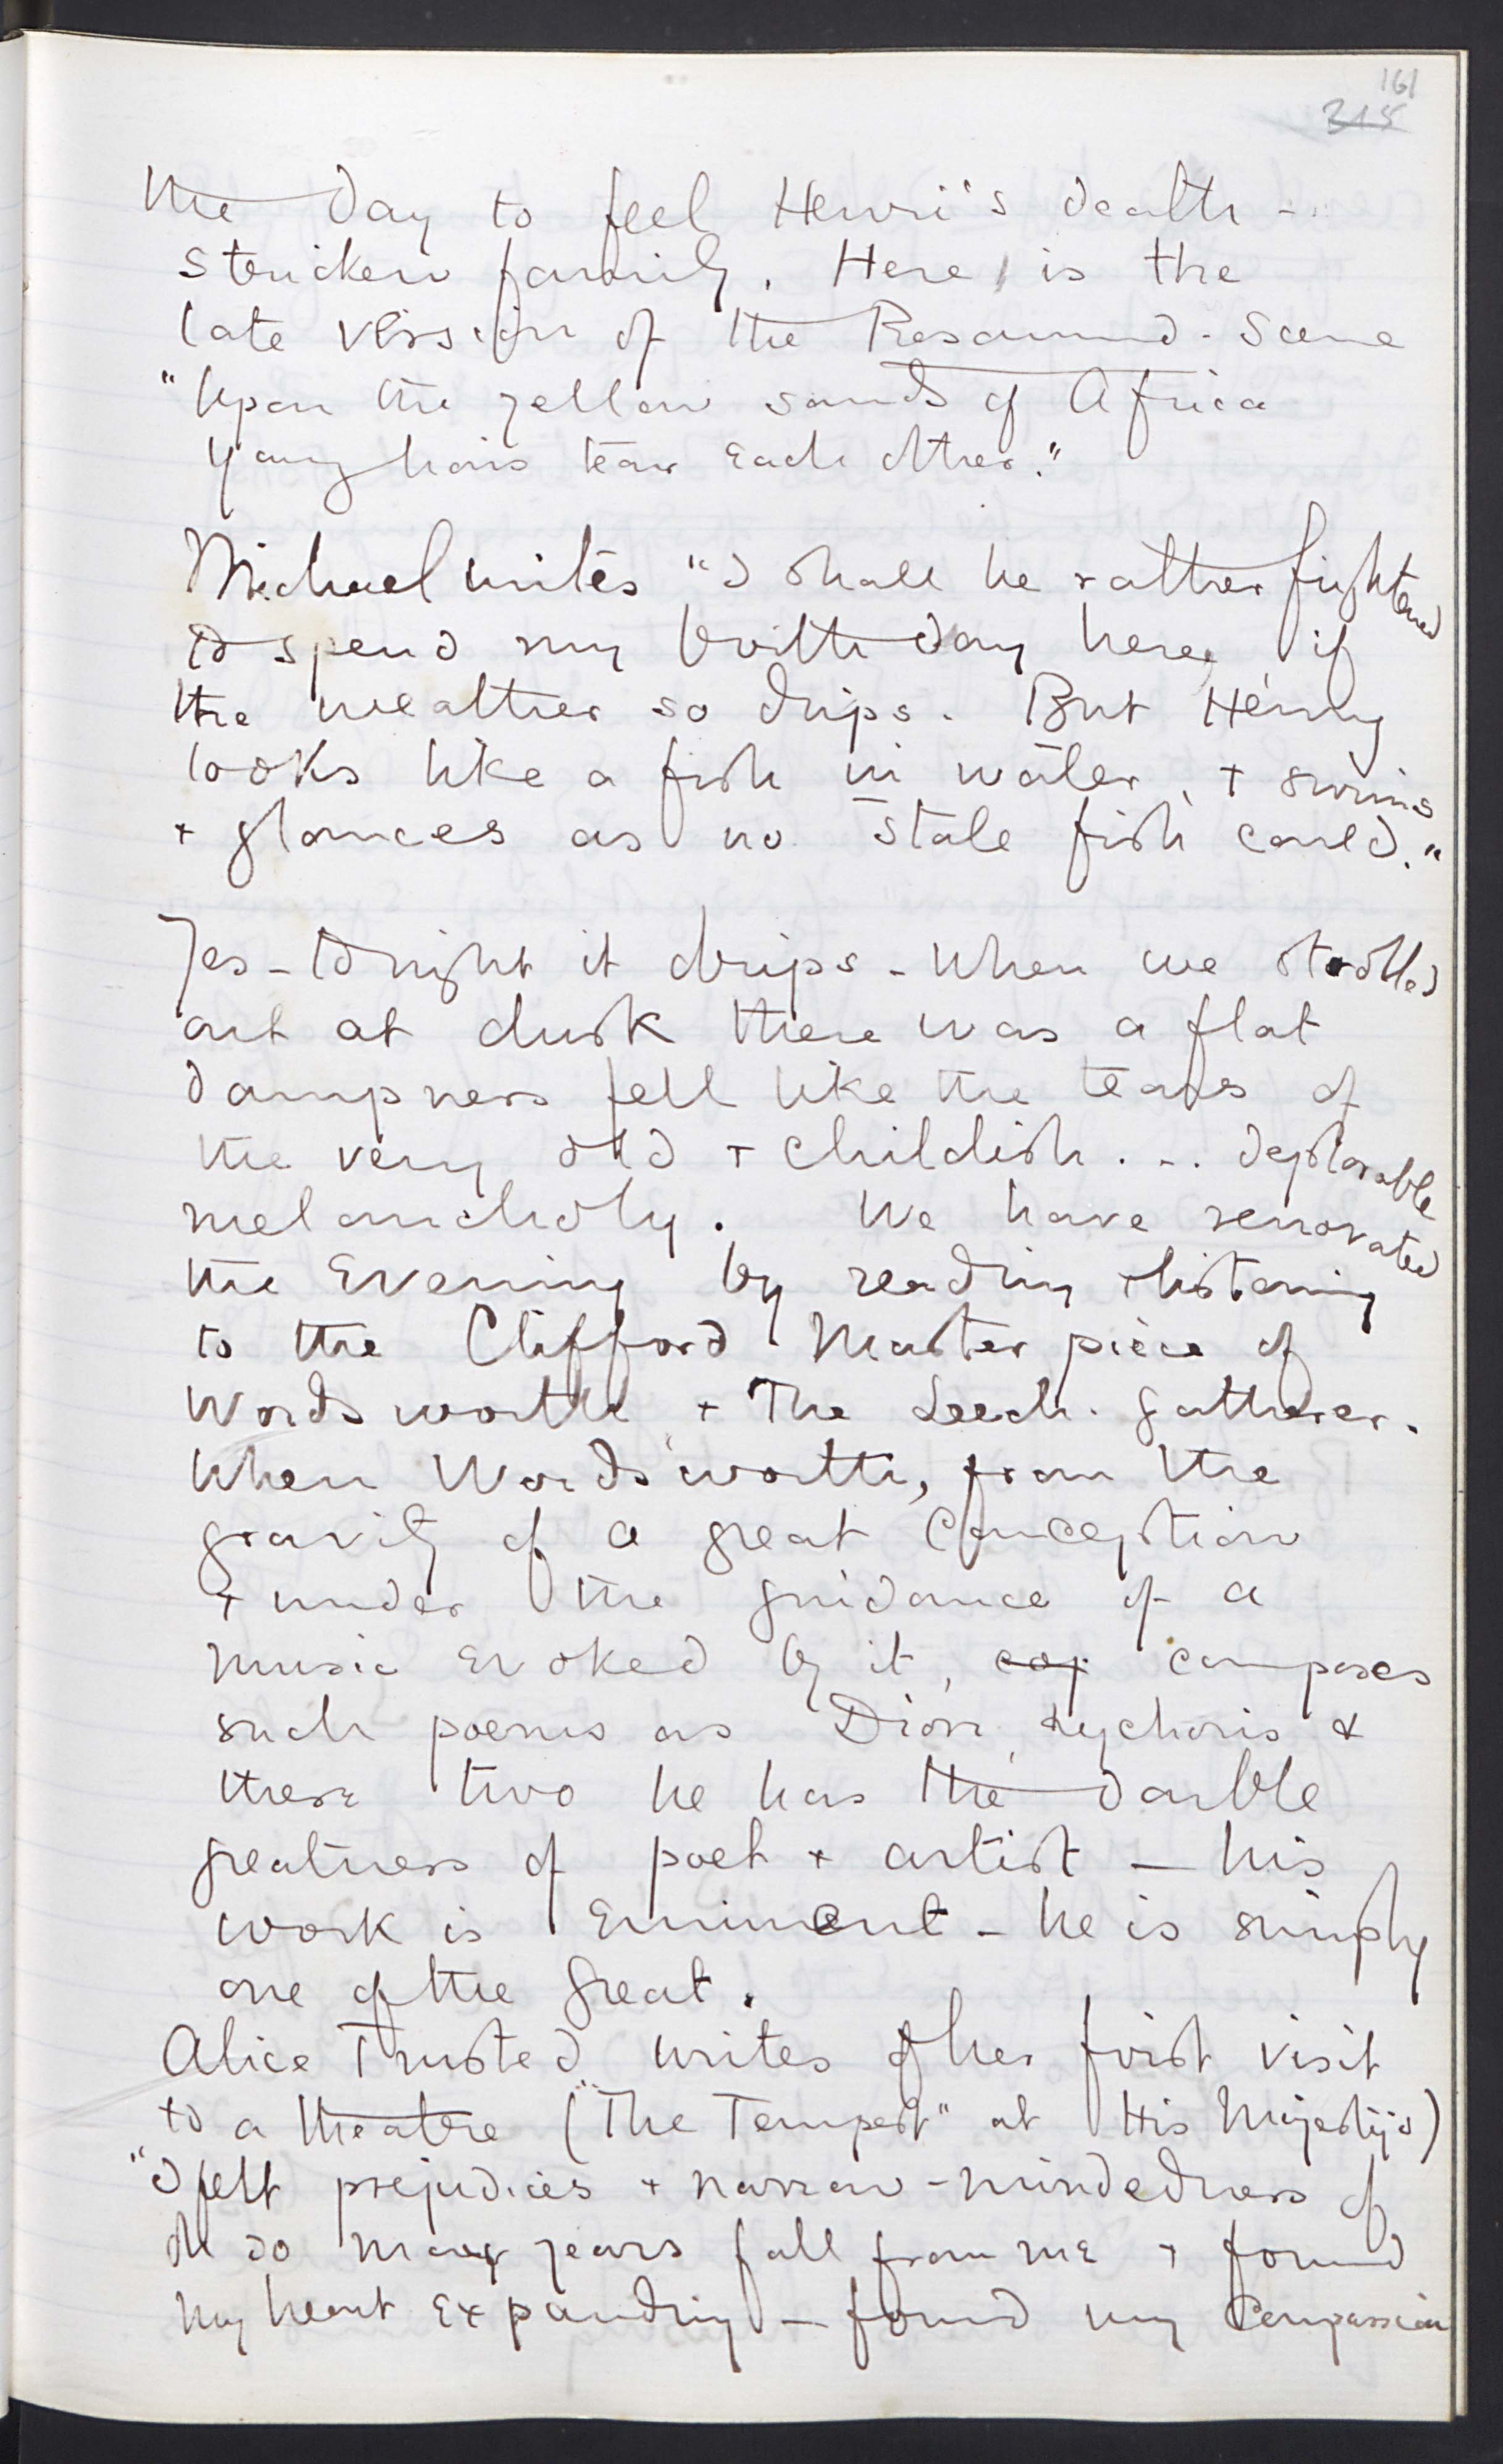 161
315
the Day to feel Henri's death-
stricken family. Here is the
late version of the Rosamund-Scene
"Upon the yellow sands of Africa
Young lions tear each other."
Michael writes "I shall be rather frightened
to spend my birthday here, if
the weather so drips. But Henny
looks like a fish in water, + swims
+ glances as no stale fish could."
Yes - tonight it drips - When we strolled
out at dusk there was a flat
dampness fell like the tears of
the very old + childish... deplorable
melancholy. We have renovated
the Evening by reading + listening
to the Clifford Master piece of
Wordsworth + The Leech-gatherer.
When Wordsworth, from the
gravity of a great Conception
+ under the guidance of a
music evoked by it, cop composes
such poems as Dion, Lychoris &
these two he has the double
greatness of poet + artist — his
work is Eminent - he is simply
one of the great.
Alice Trusted writes of her first visit
to a theatre ("The Tempest" at His Majesty's)
"I felt prejudices + narrow-mindedness of
so many years fall from me + found
my heart expanding — found my Compassion